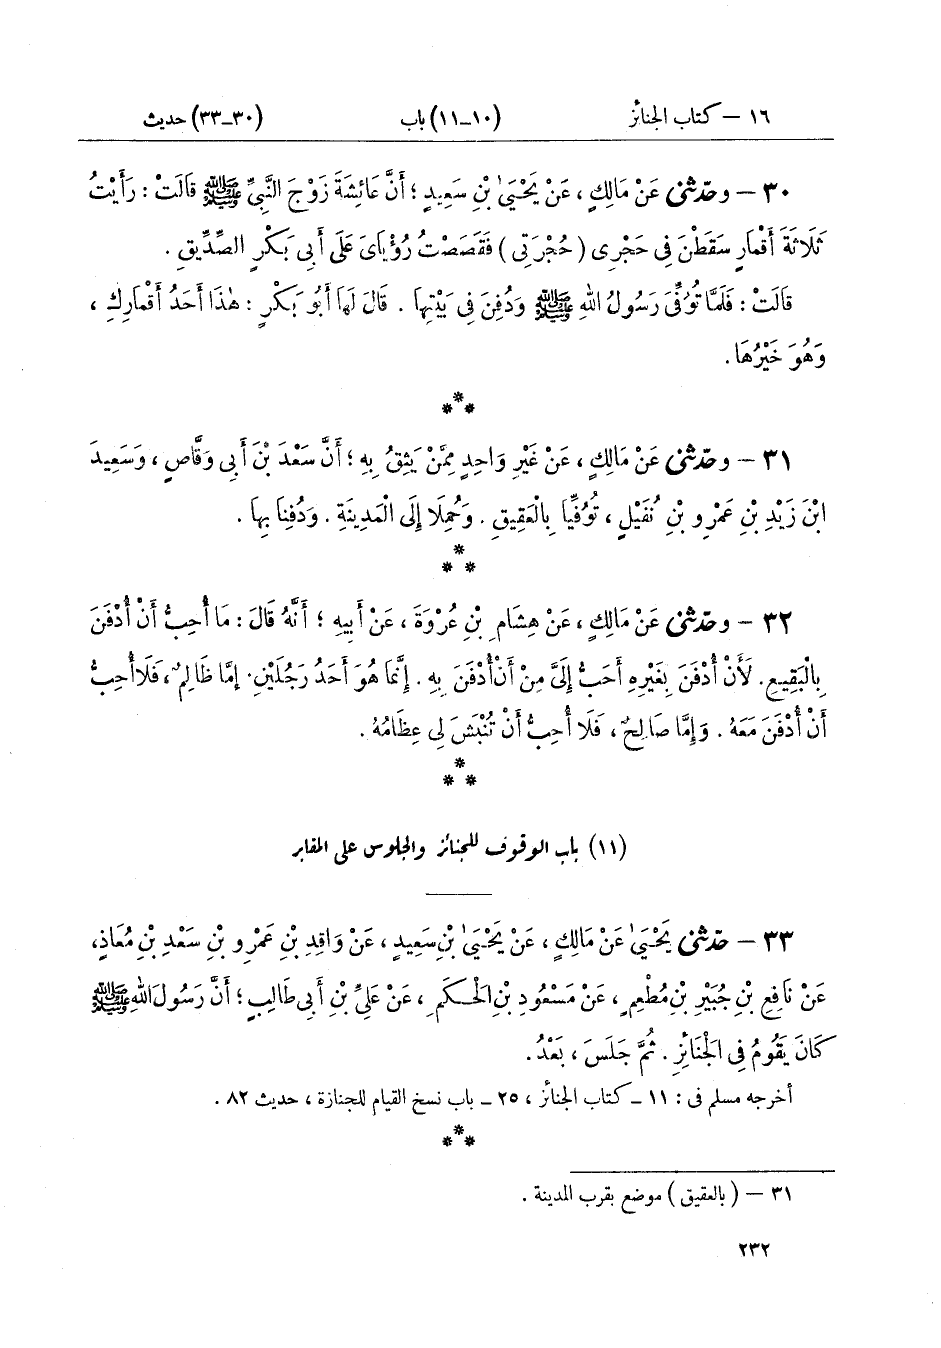 ١٦ – كتاب الجنائز (١٠–١١) باب (٣٠–٣٣) حديث
٣٠ – وحدّثنى عَنْ مَالِكٍ ، عَنْ يَحْيَىٰ بْنِ سَعِيدٍ ؛ أَنَّ عَائِشَةَ زَوْجَ النَّبِيِّ ﷺ قَالَتْ : رَأَيْتُ
ثَلَاثَةَ أَقْمَارٍ سَقَطْنَ فِى حَجْرِى ( حُجْرَتِى ) فَقَصَصْتُ رُؤْيَاىَ عَلَى أَبِى بَكْرٍ الصِّدِّيقِ .
قَالَتْ : فَلَمَّا تُوُفِّىَ رَسُولُ اللهِ ﷺ وَدُفِنَ فِى بَيْتِهَا . قَالَ لَهَا أَبُو بَكْرٍ : هٰذَا أَحَدُ أَقْمَارِكِ ،
وَهُوَ خَيْرُهَا .
***
٣١ – وحدّثنى عَنْ مَالِكٍ ، عَنْ غَيْرِ وَاحِدٍ مِمَّنْ يَثِقُ بِهِ ؛ أَنَّ سَعْدَ بْنَ أَبِى وَقَّاصٍ ، وَسَعِيدَ
ابْنَ زَيْدِ بْنِ عَمْرِو بْنِ نُفَيْلٍ ، تُوُفِّيَا بِالْعَقِيقِ . وَحُمِلَا إِلَى الْمَدِينَةِ . وَدُفِنَا بِهَا .
***
٣٢ – وحدّثنى عَنْ مَالِكٍ ، عَنْ هِشَامِ بْنِ عُرْوَةَ ، عَنْ أَبِيهِ ؛ أَنَّهُ قَالَ : مَا أُحِبُّ أَنْ أُدْفَنَ
بِالْبَقِيعِ . لَأَنْ أُدْفَنَ بِغَيْرِهِ أَحَبُّ إِلَىَّ مِنْ أَنْ أُدْفَنَ بِهِ . إِنَّمَا هُوَ أَحَدُ رَجُلَيْنِ . إِمَّا ظَالِمٌ ، فَلَا أُحِبُّ
أَنْ أُدْفَنَ مَعَهُ . وَإِمَّا صَالِحٌ ، فَلَا أُحِبُّ أَنْ تُنْبَشَ لِى عِظَامُهُ .
***
(١١) باب الوقوف للجنائز والجلوس على المقابر
٣٣ – حدّثنى يَحْيَىٰ عَنْ مَالِكٍ ، عَنْ يَحْيَىٰ بْنِ سَعِيدٍ ، عَنْ وَاقِدِ بْنِ عَمْرِو بْنِ سَعْدِ بْنِ مُعَاذٍ ،
عَنْ نَافِعِ بْنِ جُبَيْرِ بْنِ مُطْعِمٍ ، عَنْ مَسْعُودِ بْنِ الْحَكَمِ ، عَنْ عَلِىِّ بْنِ أَبِى طَالِبٍ ؛ أَنَّ رَسُولَ اللهِ ﷺ
كَانَ يَقُومُ فِى الْجَنَائِزِ . ثُمَّ جَلَسَ ، بَعْدُ .
أخرجه مسلم فى : ١١ – كتاب الجنائز ، ٢٥ – باب نسخ القيام للجنازة ، حديث ٨٢ .
***
٣١ – ( بالعقيق ) موضع بقرب المدينة .
٢٣٢